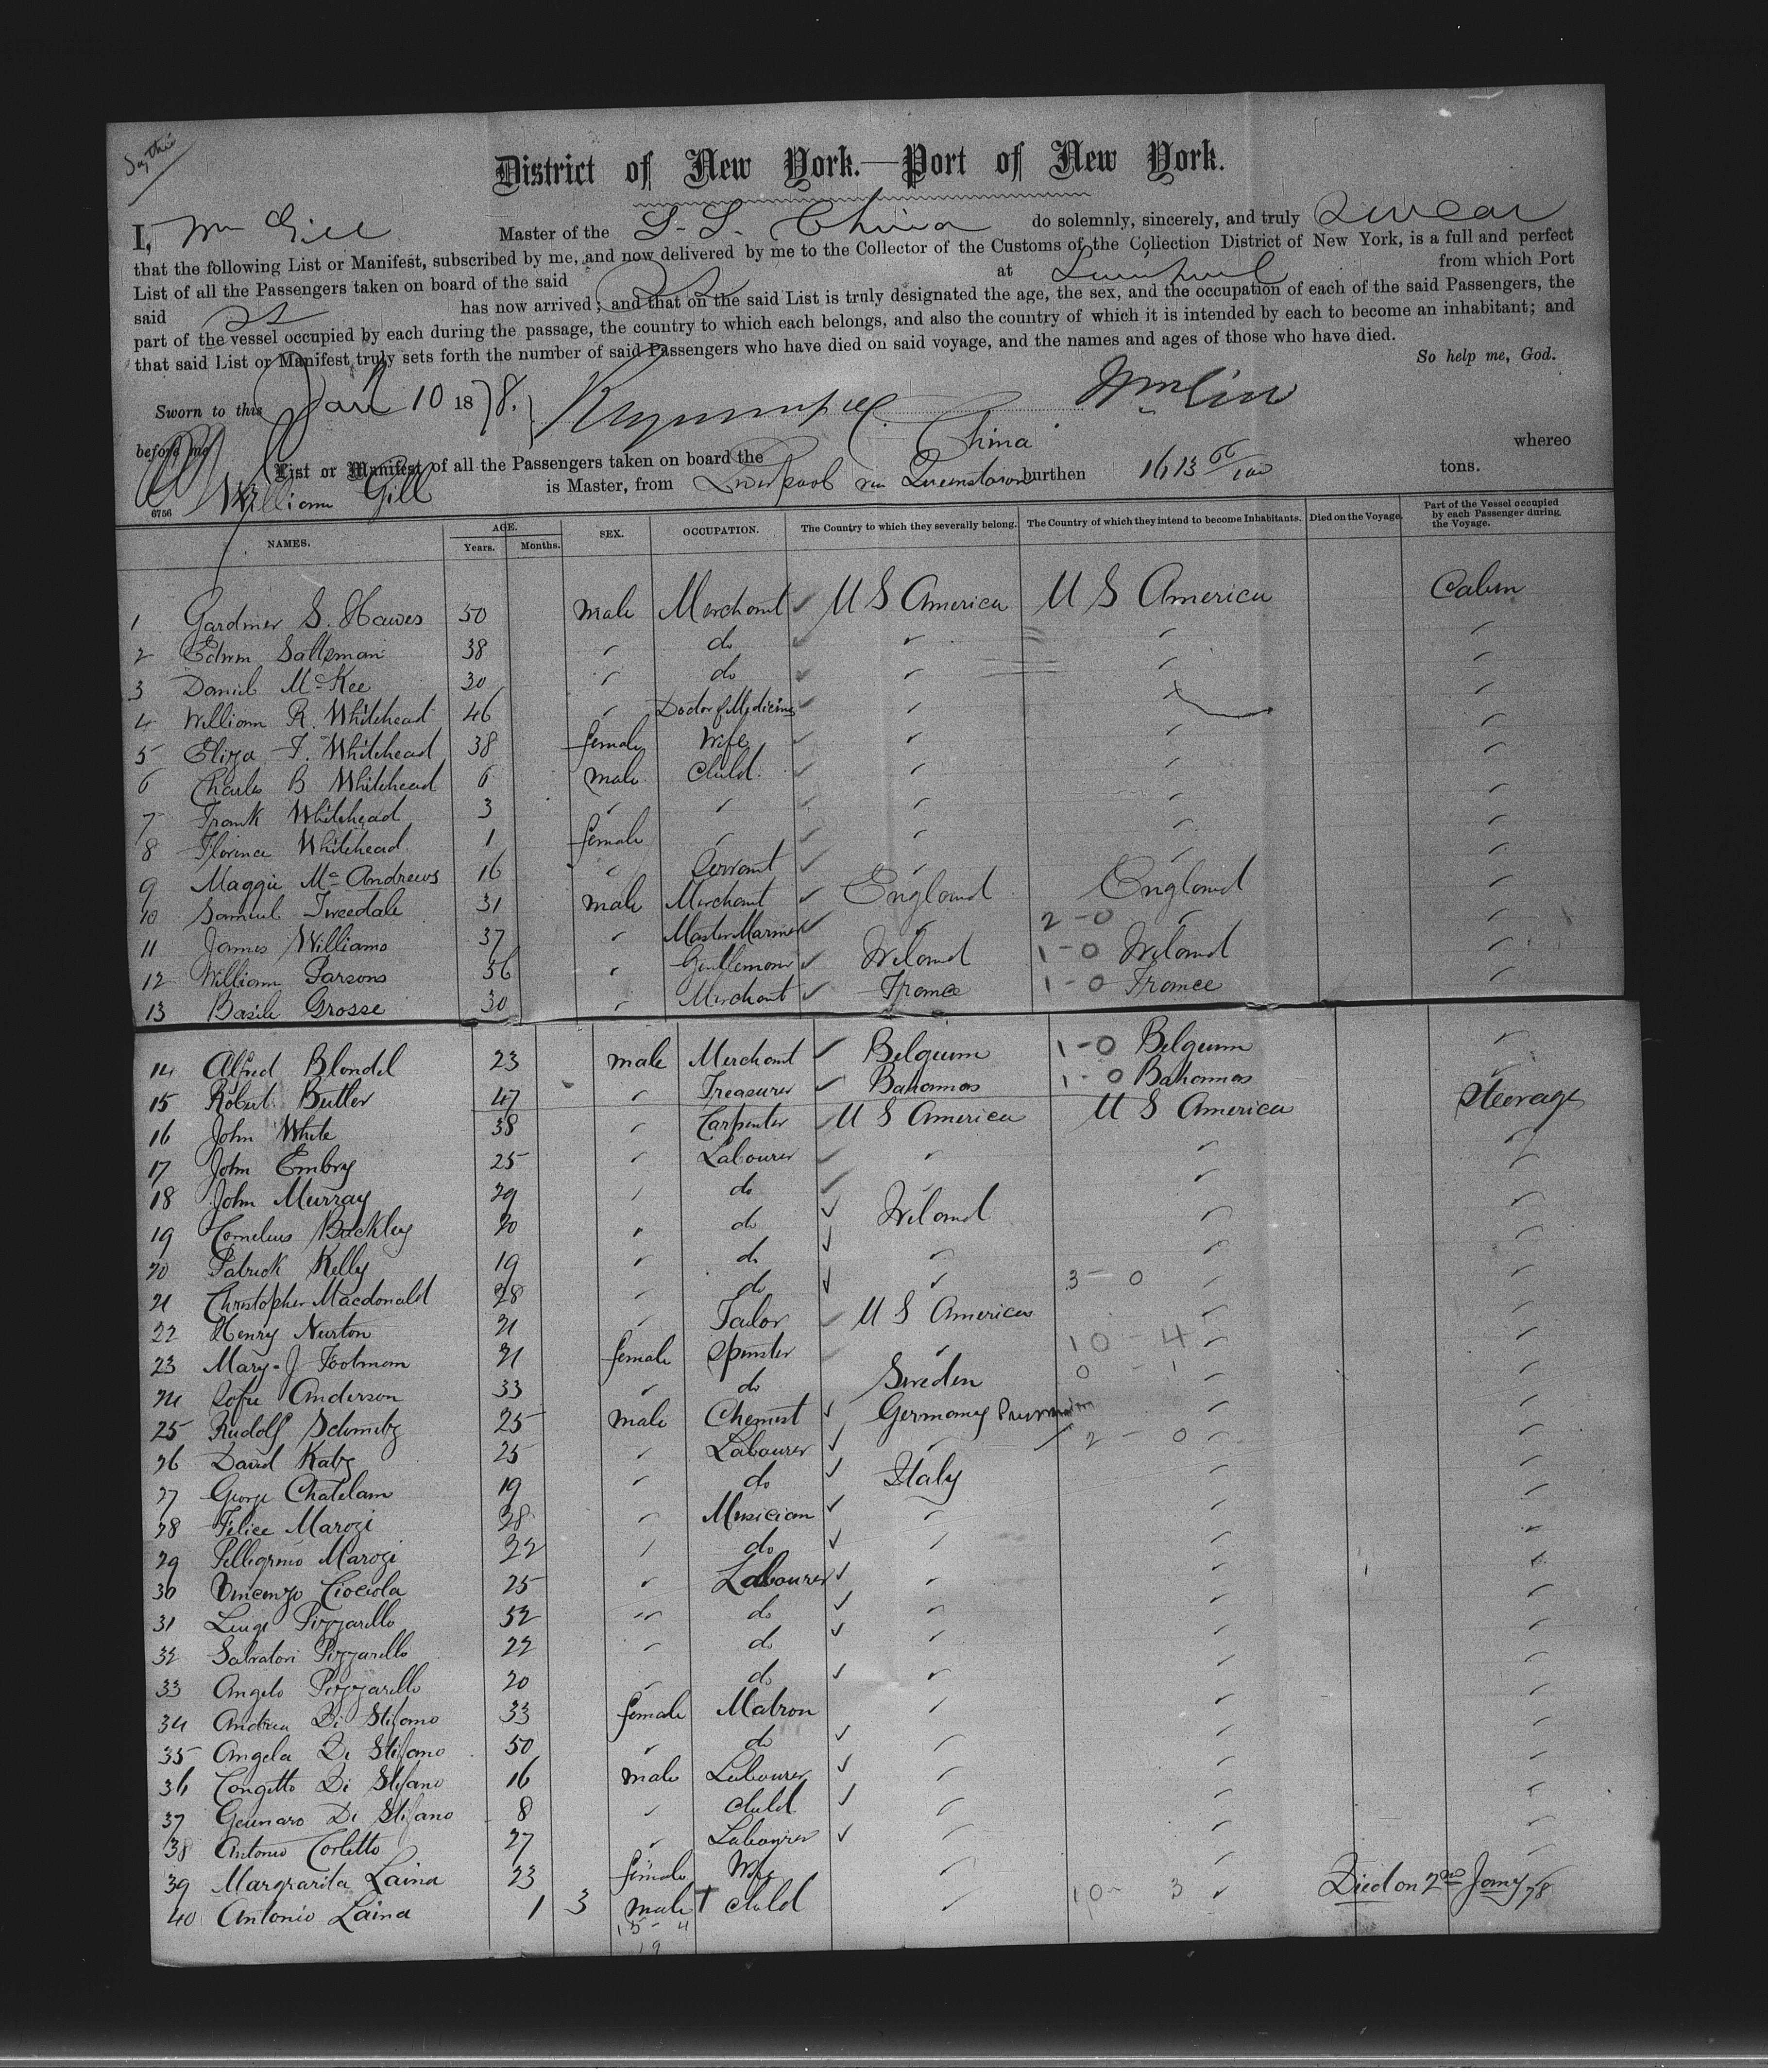 District of New York.—Port of New York.
I, Wm Gill Master of the S.S. China do solemnly, sincerely, and truly Swear
that the following List or Manifest, subscribed by me, and now delivered by me to the Collector of the Customs of the Collection District of New York, is a full and perfect
List of all the Passengers taken on board of the said SS at Liverpool from which Port
said SS has now arrived; and that on the said List is truly designated the age, the sex, and the occupation of each of the said Passengers, the
part of the vessel occupied by each during the passage, the country to which each belongs, and also the country of which it is intended by each to become an inhabitant; and
that said List or Manifest truly sets forth the number of said Passengers who have died on said voyage, and the names and ages of those who have died.
So help me, God.
Sworn to this Jany 10 1878. Wm Gill
before me
List or Manifest of all the Passengers taken on board the China whereo
William Gill is Master, from Liverpool via Queenstown burthen 1613 66/100 tons.
6756
NAMES. AGE. Years. Months. SEX. OCCUPATION. The Country to which they severally belong. The Country of which they intend to become Inhabitants. Died on the Voyage. Part of the Vessel occupied by each Passenger during the Voyage.
1 Gardiner S. Hawes 50 male Merchant ✓ U S America U S America Cabin
2 Edwin Saltzman 38 " do ✓ " " "
3 Daniel McKee 30 " do ✓ " " "
4 William R. Whitehead 46 " Doctor of Medicine ✓ " "
5 Eliza F. Whitehead 38 female Wife ✓ " " "
6 Charles B Whitehead 6 male Child ✓ " " "
7 Frank Whitehead 3 " " ✓ " " "
8 Florence Whitehead 1 female " ✓ " " "
9 Maggie McAndrews 16 " Servant ✓ " " "
10 Samuel Tweedale 31 male Merchant ✓ England England "
11 James Williams 37 " Master Mariner ✓ " 2-0 " "
12 William Parsons 36 " Gentleman ✓ Ireland 1-0 Ireland "
13 Basile Grosse 30 " Merchant ✓ France 1-0 France "
14 Alfred Blondel 23 male Merchant ✓ Belgium 1-0 Belgium "
15 Robert Butler 47 " Treasurer ✓ Bahamas 1-0 Bahamas "
16 John White 38 " Carpenter ✓ U S America U S America Steerage
17 John Embry 25 " Labourer ✓ " " "
18 John Murray 29 " do ✓ " " "
19 Cornelius Buckley 20 " do ✓ Ireland " "
20 Patrick Kelly 19 " do ✓ " " "
21 Christopher Macdonald 28 " do ✓ " 3-0 " "
22 Henry Nurton 21 " Tailor ✓ U S America " "
23 Mary J Footman 21 female Spinster ✓ " 10-4 " "
24 Sofie Anderson 33 " do Sweden 0-1 " "
25 Rudolf Schmitz 25 male Chemist ✓ Germany Prussian " "
26 David Katz 25 " Labourer ✓ " 2-0 " "
27 George Chatelam 19 " do ✓ Italy " "
28 Felice Marozi 28 " Musician ✓ " " "
29 Pellegrino Marozi 22 " do ✓ " " "
30 Vincenzo Ciociola 25 " Labourer ✓ " " "
31 Luigi Pizzarello 52 " do ✓ " " "
32 Salvatori Pizzarello 22 " do ✓ " " "
33 Angelo Pizzarello 20 " do ✓ " " "
34 Andrea Di Stefano 33 female Matron " " "
35 Angela Di Stefano 50 " do ✓ " " "
36 Congetto Di Stefano 16 male Labourer ✓ " " "
37 Gennaro Di Stefano 8 " Child ✓ " " "
38 Antonio Corletto 27 " Labourer ✓ " " "
39 Margrarita Laina 23 female Wife " " "
40 Antonio Laina 1 3 male † Child " 10-3 " Died on 2nd Jany 78
15-4
19